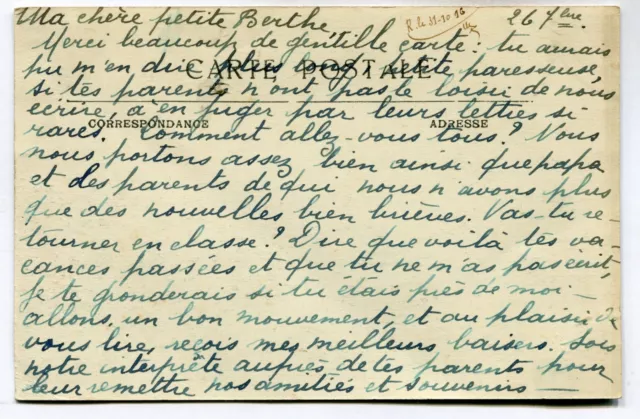 Ma chère petite Berthe, 26 7bre.
R. le 31-10 16
Merci beaucoup de gentille carte: tu aurais
pu m'en dire plus long, petite paresseuse,
CARTE POSTALE
si tes parents n'ont pas le loisir de nous
écrire, à en juger par leurs lettres si
CORRESPONDANCE ADRESSE
rares. Comment allez-vous tous? Vous
nous portons assez bien ainsi que papa
et des parents de qui nous n'avons plus
que des nouvelles bien brièves. Vas-tu re-
tourner en classe? Dire que voilà tes va-
cances passées et que tu ne m'as pas écrit,
je te gronderais si tu étais près de moi-
allons, un bon mouvement, et au plaisir de
vous lire, reçois mes meilleurs baisers. Sois
notre interprète auprès de tes parents pour
leur remettre nos amitiés et souvenirs —